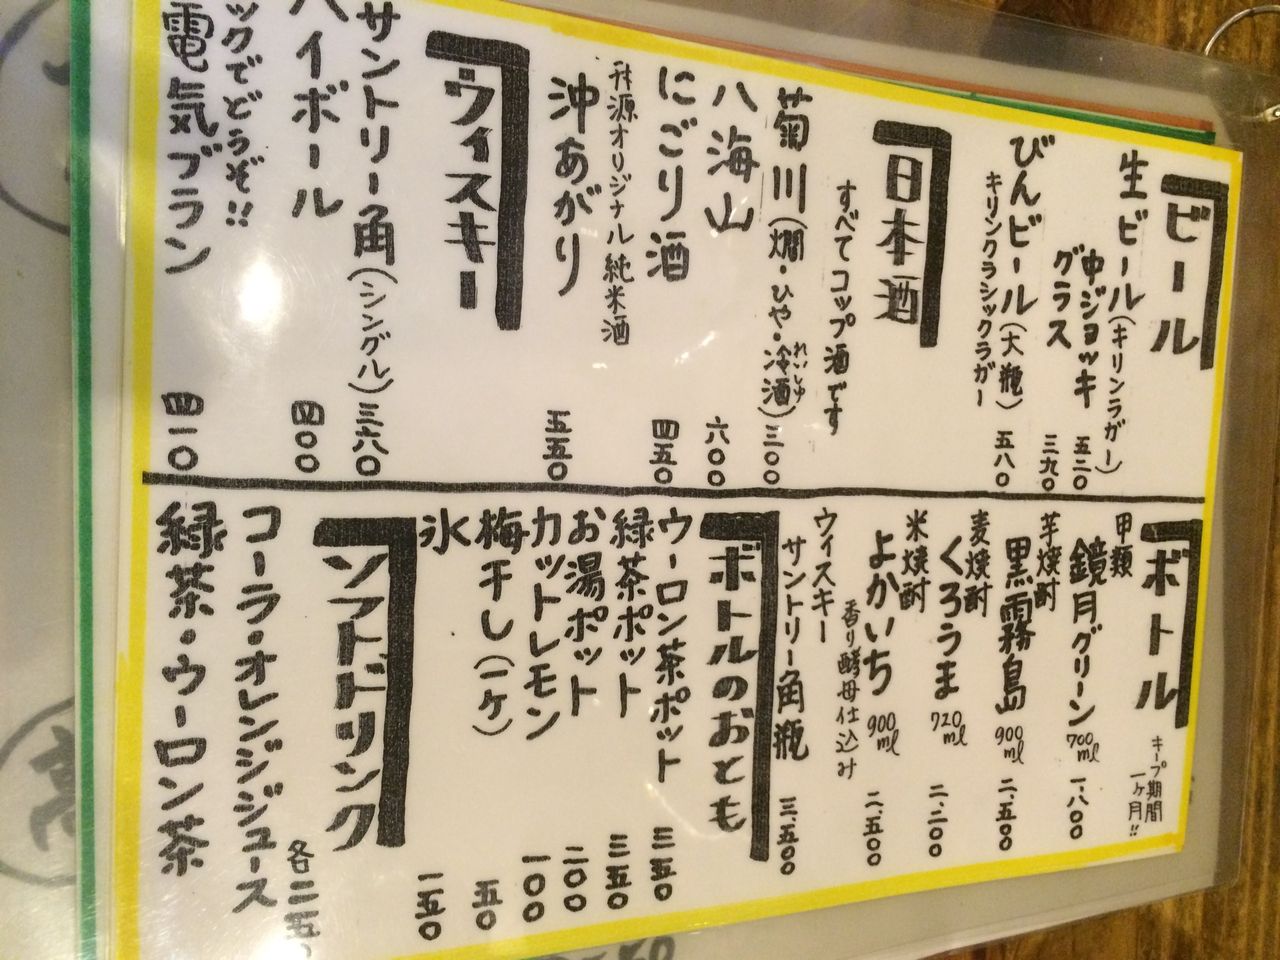 ビール
生ビール(キリンラガー)
中ジョッキ 五二〇
グラス 三九〇
びんビール(大瓶) 五八〇
キリンクラシックラガー
日本酒
すべてコップ酒です
菊川(燗・ひや・冷酒) 三〇〇
れいしゅ
八海山 六〇〇
にごり酒 四五〇
酎源オリジナル純米酒
沖あがり 五五〇
ウィスキー
サントリー角(シングル) 三六〇
ハイボール 四〇〇
ックでどうぞ!!
電気ブラン 四一〇
ボトル
キープ期間
一ヶ月!!
甲類
鏡月グリーン 700ml 一、八〇〇
芋焼酎
黒霧島 900ml 二、五〇〇
麦焼酎
くろうま 720ml 二、二〇〇
米焼酎
よかいち 900ml 二、五〇〇
香り酵母仕込み
ウィスキー
サントリー角瓶 三、五〇〇
ボトルのおとも
ウーロン茶ポット 三五〇
緑茶ポット 三五〇
お湯ポット 二〇〇
カットレモン 一〇〇
梅干し(一ケ) 五〇
氷 一五〇
ソフトドリンク
各二五〇
コーラ・オレンジジュース
緑茶・ウーロン茶